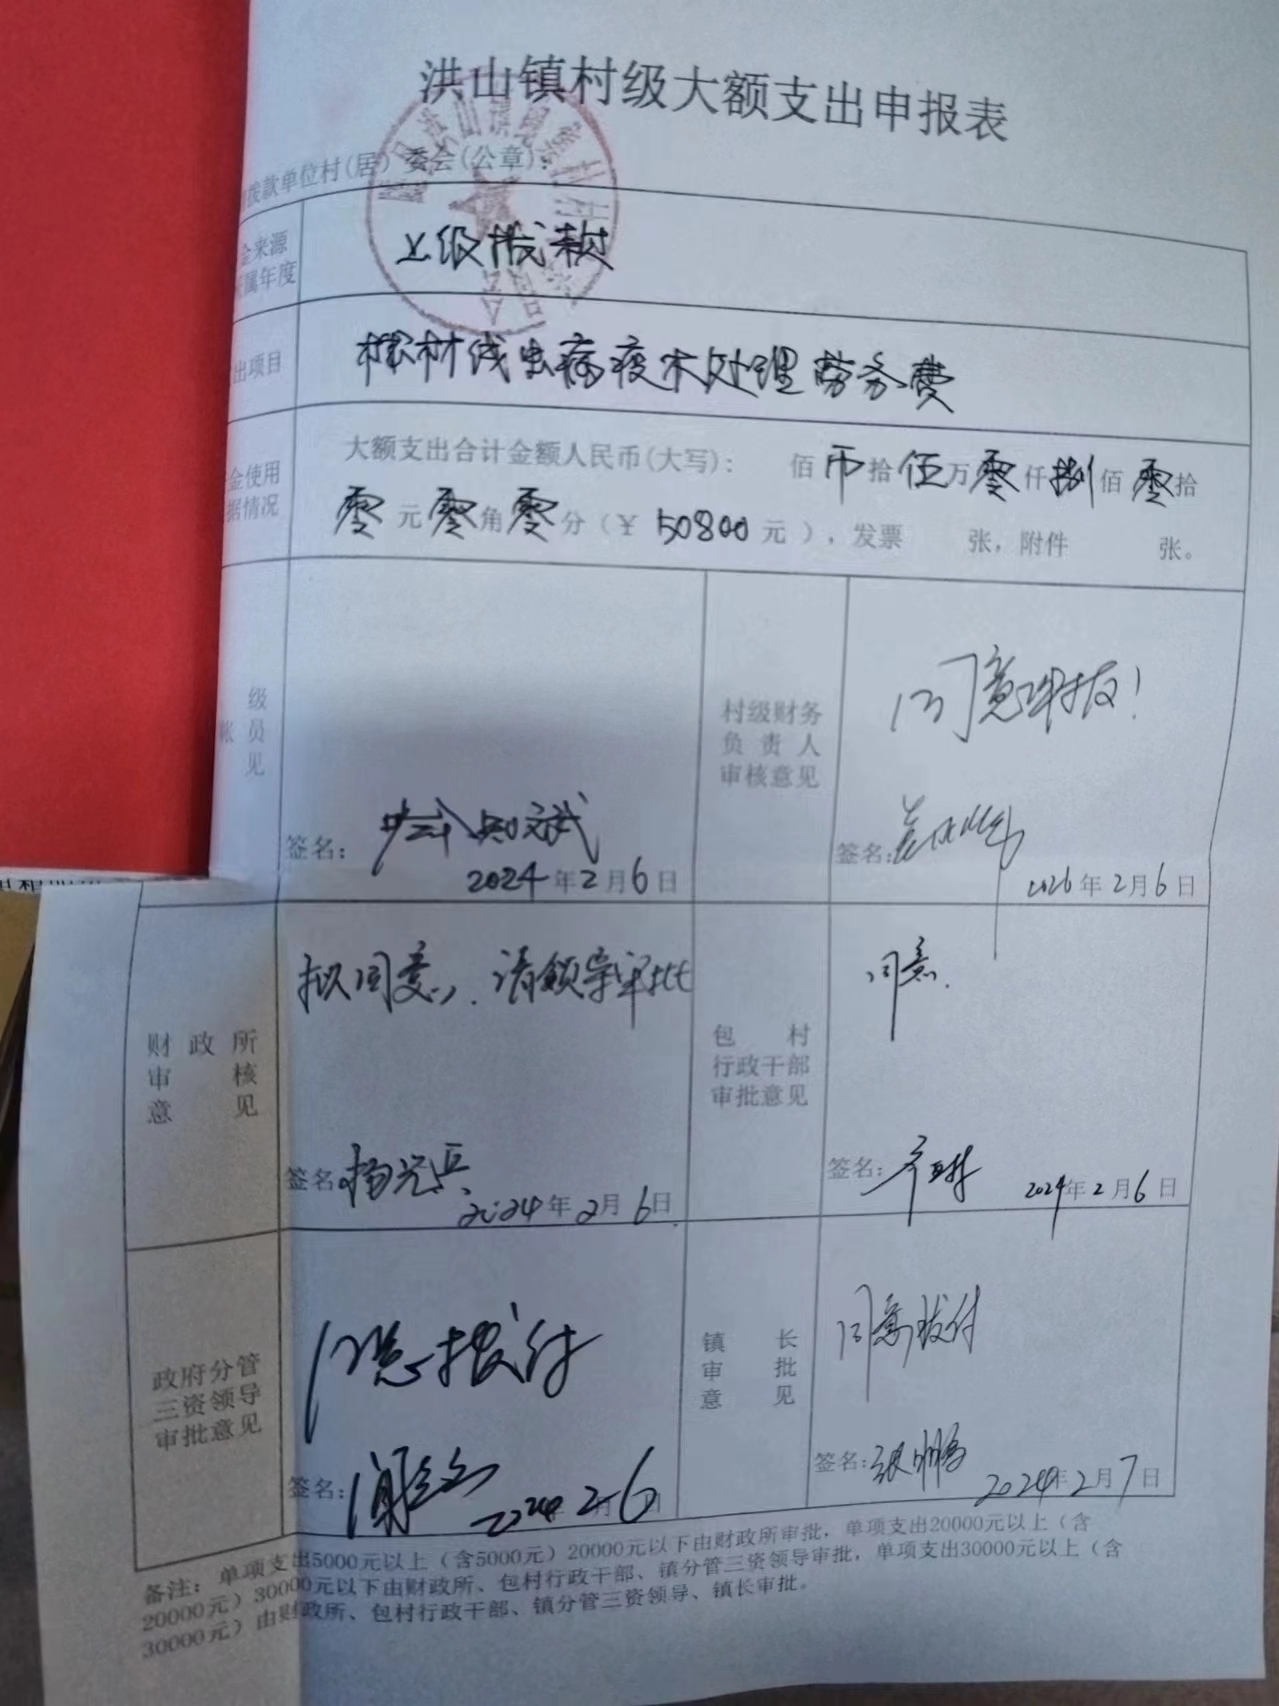 洪山镇村级大额支出申报表
拨款单位村(居)委会(公章):
金来源
属年度
上级拨款
出项目
松材线虫病疫木处理劳务费
金使用
据情况
大额支出合计金额人民币(大写): 佰币拾伍万零仟捌佰零拾
零元零角零分(￥50800元),发票 张,附件 张。
级
账员
见
签名:
2024年2月6日
村级财务
负责人
审核意见
同意
签名:
2026年2月6日
财政所
审核
意见
拟同意,请镇
签名:杨光兵
2024年2月6日
包村
行政干部
审批意见
同意.
签名:
2024年2月6日
政府分管
三资领导
审批意见
同意拨付
签名:
2024 2 6
镇长
审批
意见
同意拨付
签名:张鹏
2024年2月7日
备注:单项支出5000元以上(含5000元)20000元以下由财政所审批,单项支出20000元以上(含
20000元)30000元以下由财政所、包村行政干部、镇分管三资领导审批,单项支出30000元以上(含
30000元)由财政所、包村行政干部、镇分管三资领导、镇长审批。